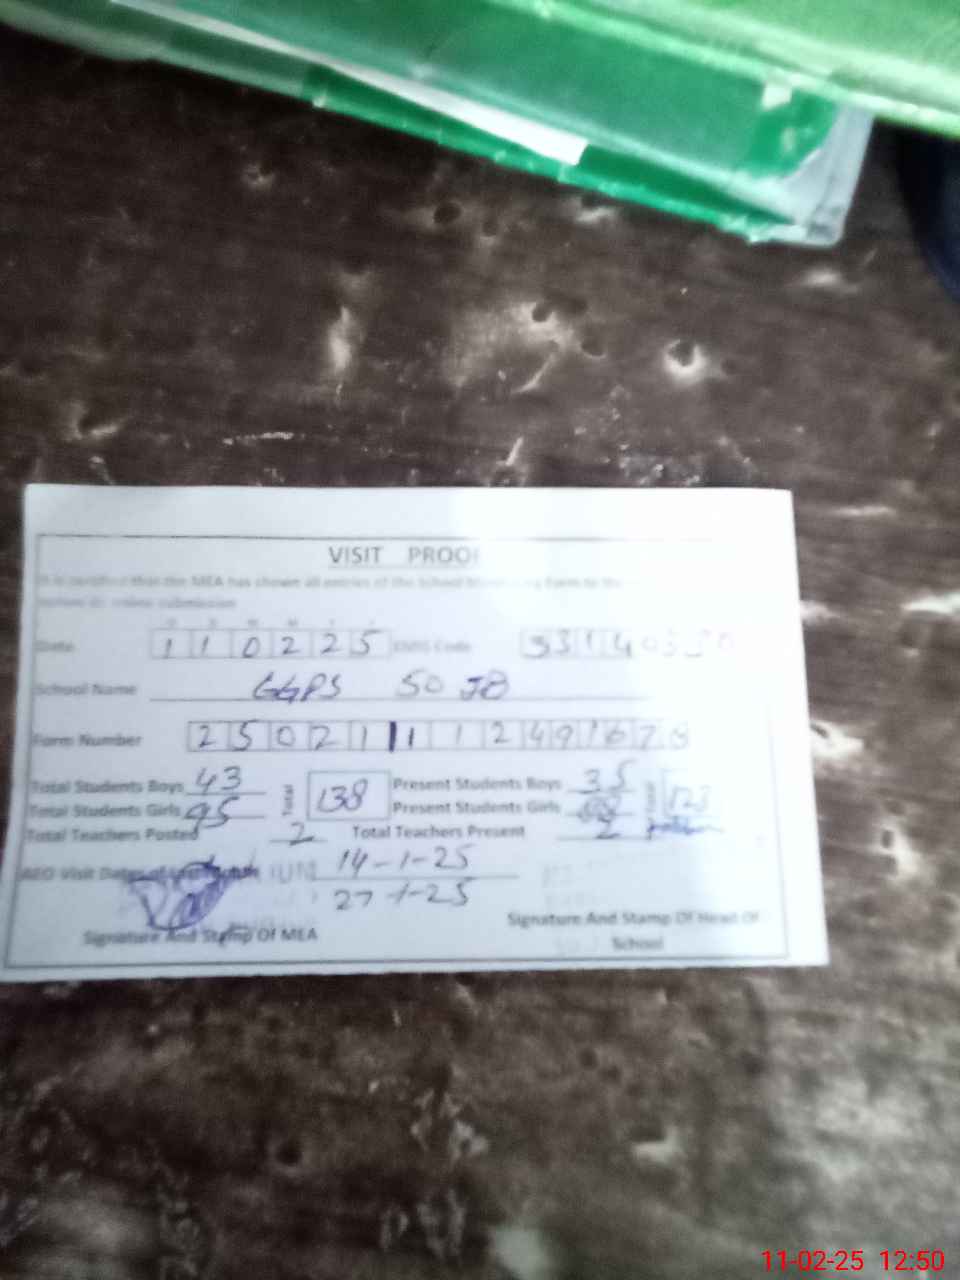 VISIT PROOF
It is certified that the MEA has shown all entries of the School Form to the
before online submission
Date 1 1 0 2 2 5 EMIS Code 3 3 1 4 0 3
School Name GGPS 50 JB
Form Number 2 5 0 2 1 1 1 1 2 4 9 1 6 7 8
Total Students Boys 43 Total 138 Present Students Boys 35 Total 123
Total Students Girls 95 Present Students Girls 88
Total Teachers Posted 2 Total Teachers Present 2
AEO Visit Dates of Last Month 14-1-25
27-1-25
Signature And Stamp Of MEA
Signature And Stamp Of Head Of
School
11-02-25 12:50